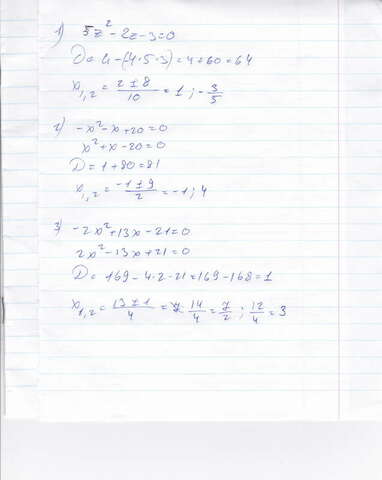 1) 5z² - 2z - 3 = 0
D = 4 - (4·5·3) = 4 + 60 = 64
x₁,₂ = (2 ± 8)/10 = 1 ; -3/5
2) -x² - x + 20 = 0
x² + x - 20 = 0
D = 1 + 80 = 81
x₁,₂ = (-1 ± 9)/2 = -1 ; 4
3) -2x² + 13x - 21 = 0
2x² - 13x + 21 = 0
D = 169 - 4·2·21 = 169 - 168 = 1
x₁,₂ = (13 ± 1)/4 = 14/4 = 7/2 ; 12/4 = 3